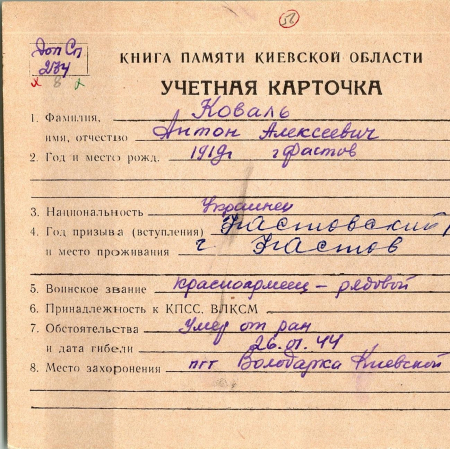 56
Доп Сп
2134
КНИГА ПАМЯТИ КИЕВСКОЙ ОБЛАСТИ
УЧЕТНАЯ КАРТОЧКА
1. Фамилия, Коваль
имя, отчество Антон Алексеевич
2. Год и место рожд. 1919г г Фастов
3. Национальность Украинец
4. Год призыва (вступления) Фастовский
и место проживания г Фастов
5. Воинское звание Красноармеец – рядовой
6. Принадлежность к КПСС. ВЛКСМ
7. Обстоятельства Умер от ран
и дата гибели 26.01.44
8. Место захоронения пгт Володарка Киевской